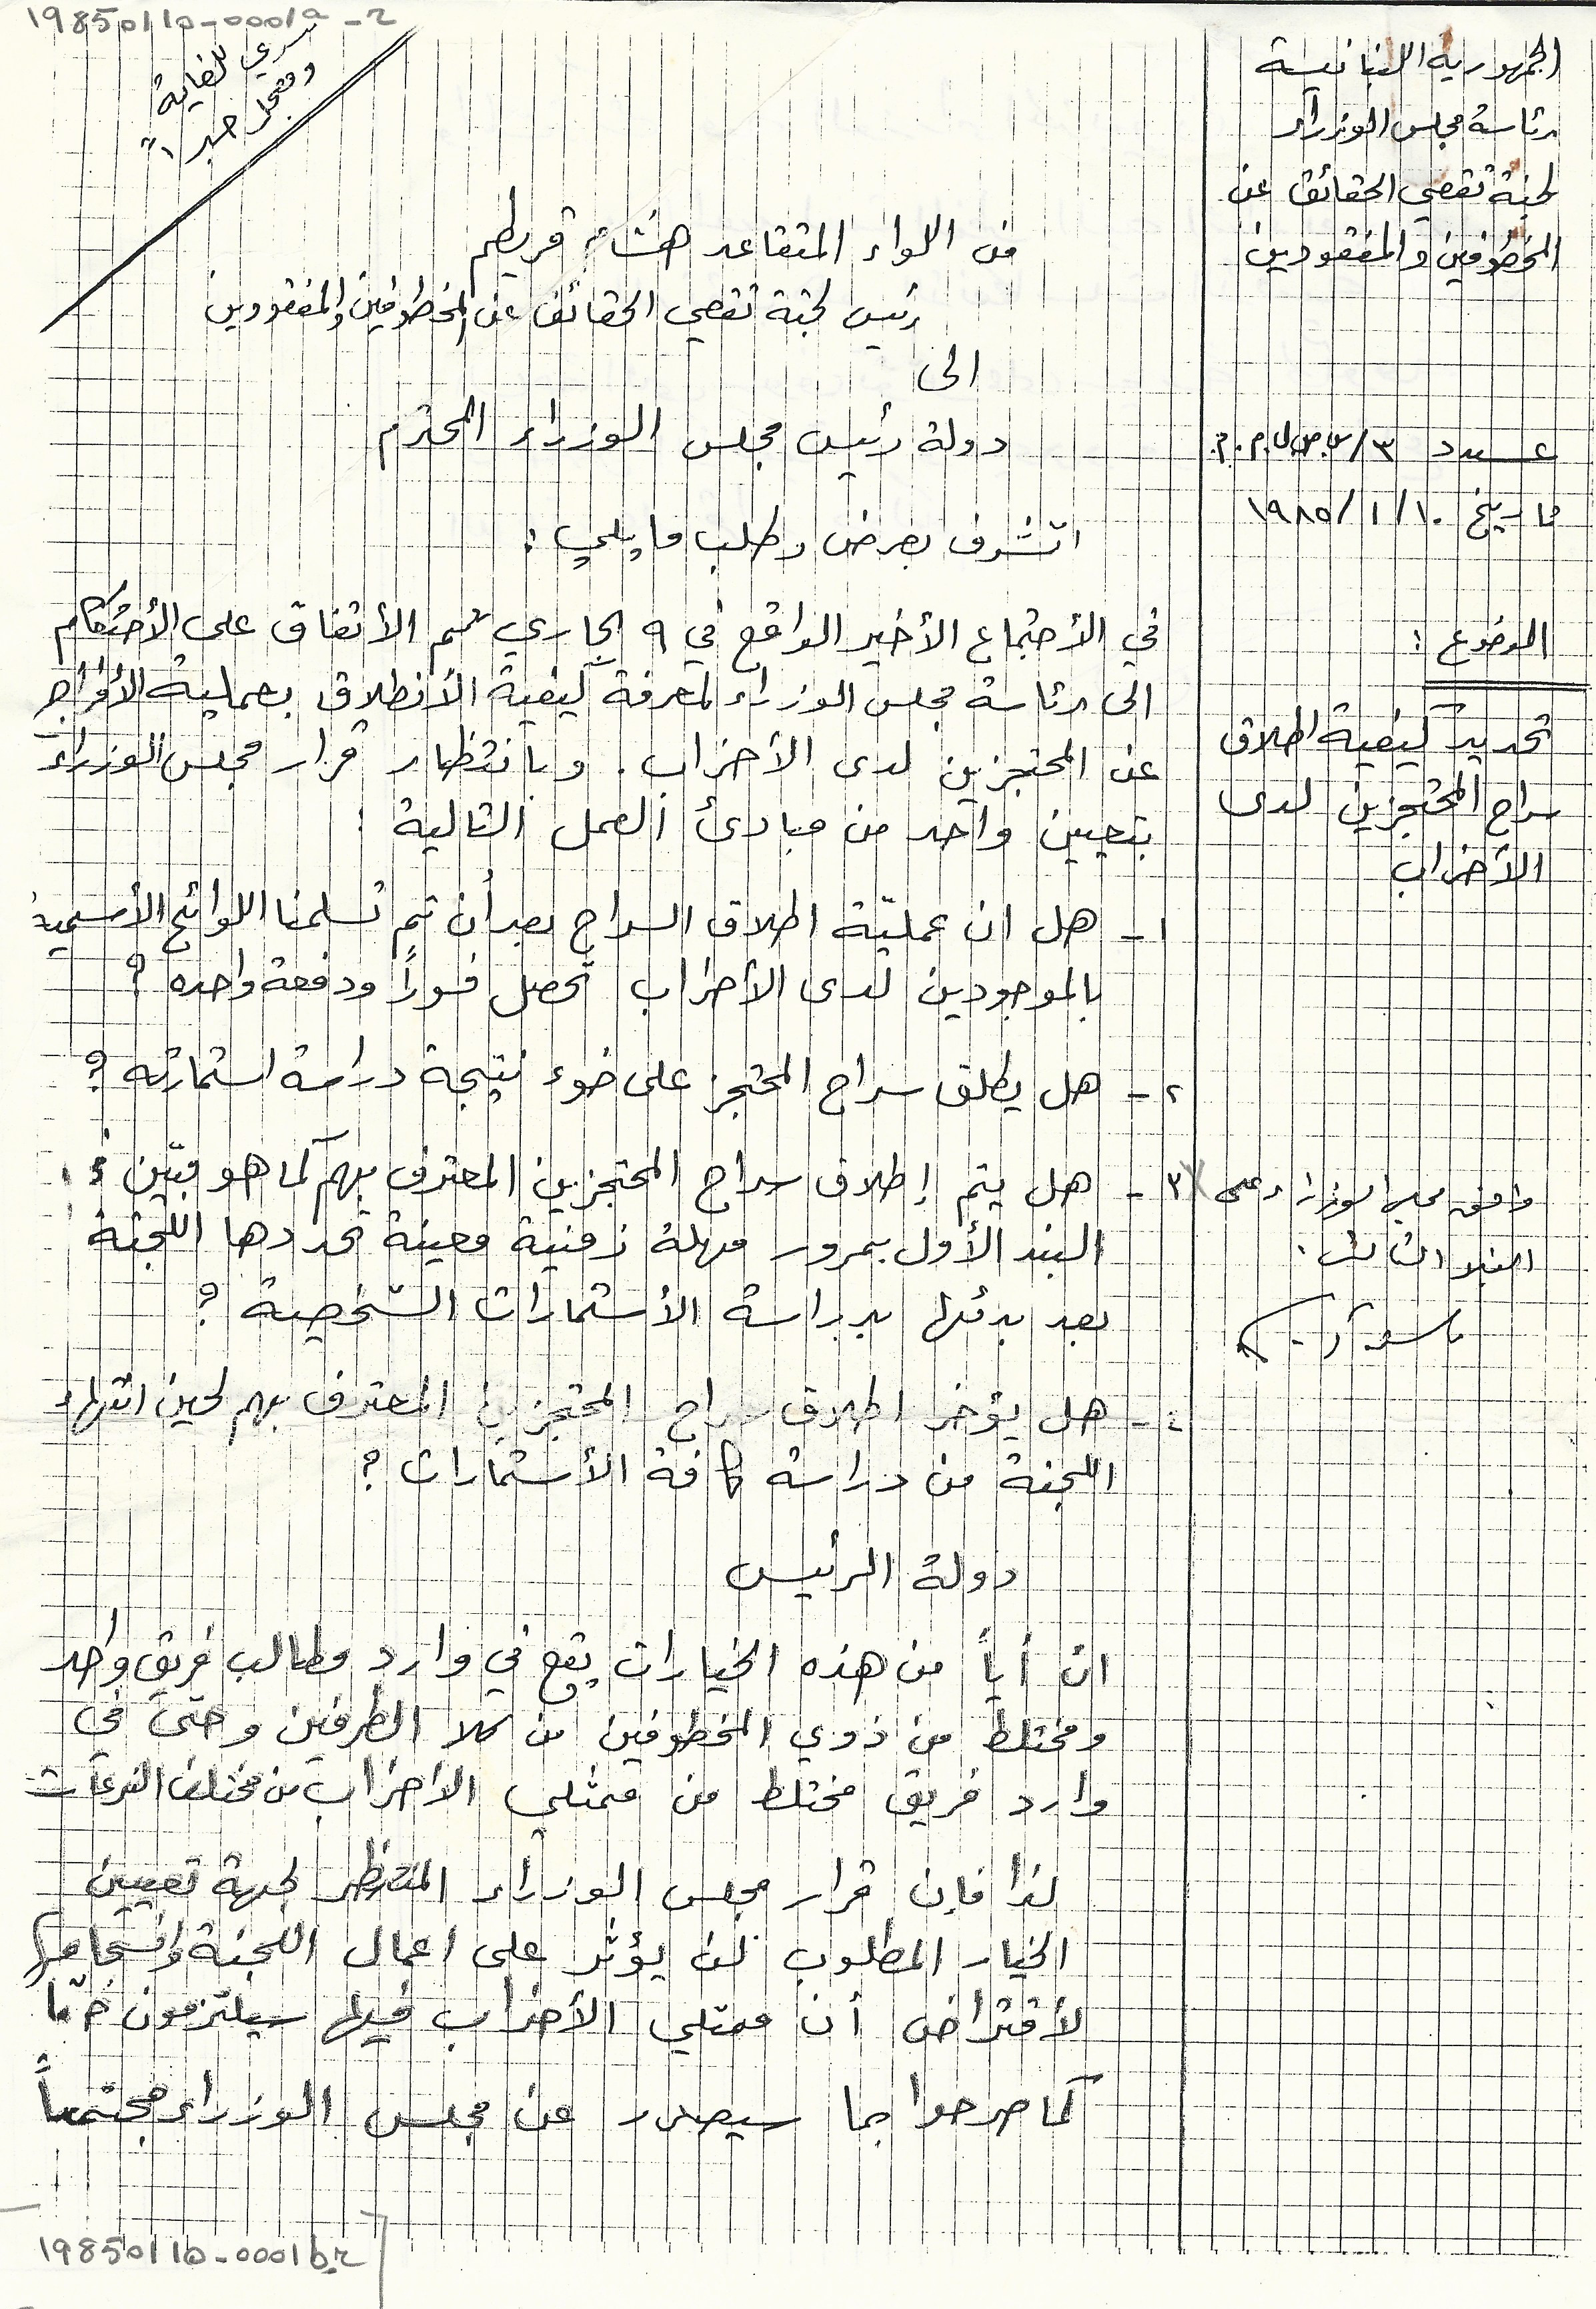 19850110-0001a-r
سري للغاية
ومعجل جداً
الجمهورية اللبنانية
رئاسة مجلس الوزراء
لجنة تقصي الحقائق عن
المخطوفين والمفقودين
عدد ٣/
تاريخ ١٩٨٥/١/١٠
الموضوع :
تحديد كيفية اطلاق
سراح المحتجزين لدى
الأحزاب
من اللواء المتقاعد هشام قريطم
رئيس لجنة تقصي الحقائق عن المخطوفين والمفقودين
الى
دولة رئيس مجلس الوزراء المحترم
اتشرف بعرض وطلب ما يلي :
في الأجتماع الأخير الواقع في ٩ الجاري تم الأتفاق على الأحتكام
الى رئاسة مجلس الوزراء لمعرفة كيفية الأنطلاق بعملية الأفراج
عن المحتجزين لدى الأحزاب. وبانتظار قرار مجلس الوزراء
بتعيين واحد من مبادئ العمل التالية :
١- هل ان عمليّة اطلاق السراح بعد أن تم تسلمنا اللوائح الأسمية
بالموجودين لدى الأحزاب تحصل فوراً ودفعة واحده ؟
٢- هل يطلق سراح المحتجز على ضوء نتيجة دراسة استمارته ؟
٣- هل يتم إطلاق سراح المحتجزين المعترف بهم كما هو مبيّن في
البند الأول بمرور مهلة زمنية معينة تحددها اللجنة
بعد بدئها بدراسة الأستمارات الشخصية ؟
وافق مجلس الوزراء على
البند الثالث.
٤- هل يؤخر اطلاق سراح المحتجزين المعترف بهم لحين انتهاء
اللجنة من دراسة كافة الأستمارات ؟
دولة الرئيس
ان أياً من هذه الخيارات يقع في وارد مطالب فريق واحد
ومختلط من ذوي المخطوفين من كلا الطرفين وحتى في
وارد فريق مختلط من ممثلي الأحزاب من مختلف النزعات
لذا فإن قرار مجلس الوزراء المنتظر لجهة تعيين
الخيار المطلوب لن يؤثر على اعمال اللجنة وانسجامها
لأفتراض أن ممثلي الأحزاب فيها سيلتزمون حتماً
كما صرحوا بما سيصدر عن مجلس الوزراء مجتمعاً
19850110-0001b-r